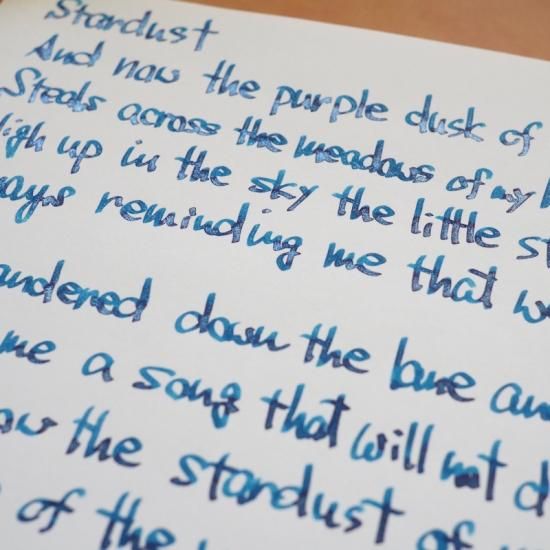 Stardust
And now the purple dusk of
Steals across the meadows of my
High up in the sky the little st
ways reminding me that we
andered down the lane an
me a song that will not d
ow the stardust of
of the